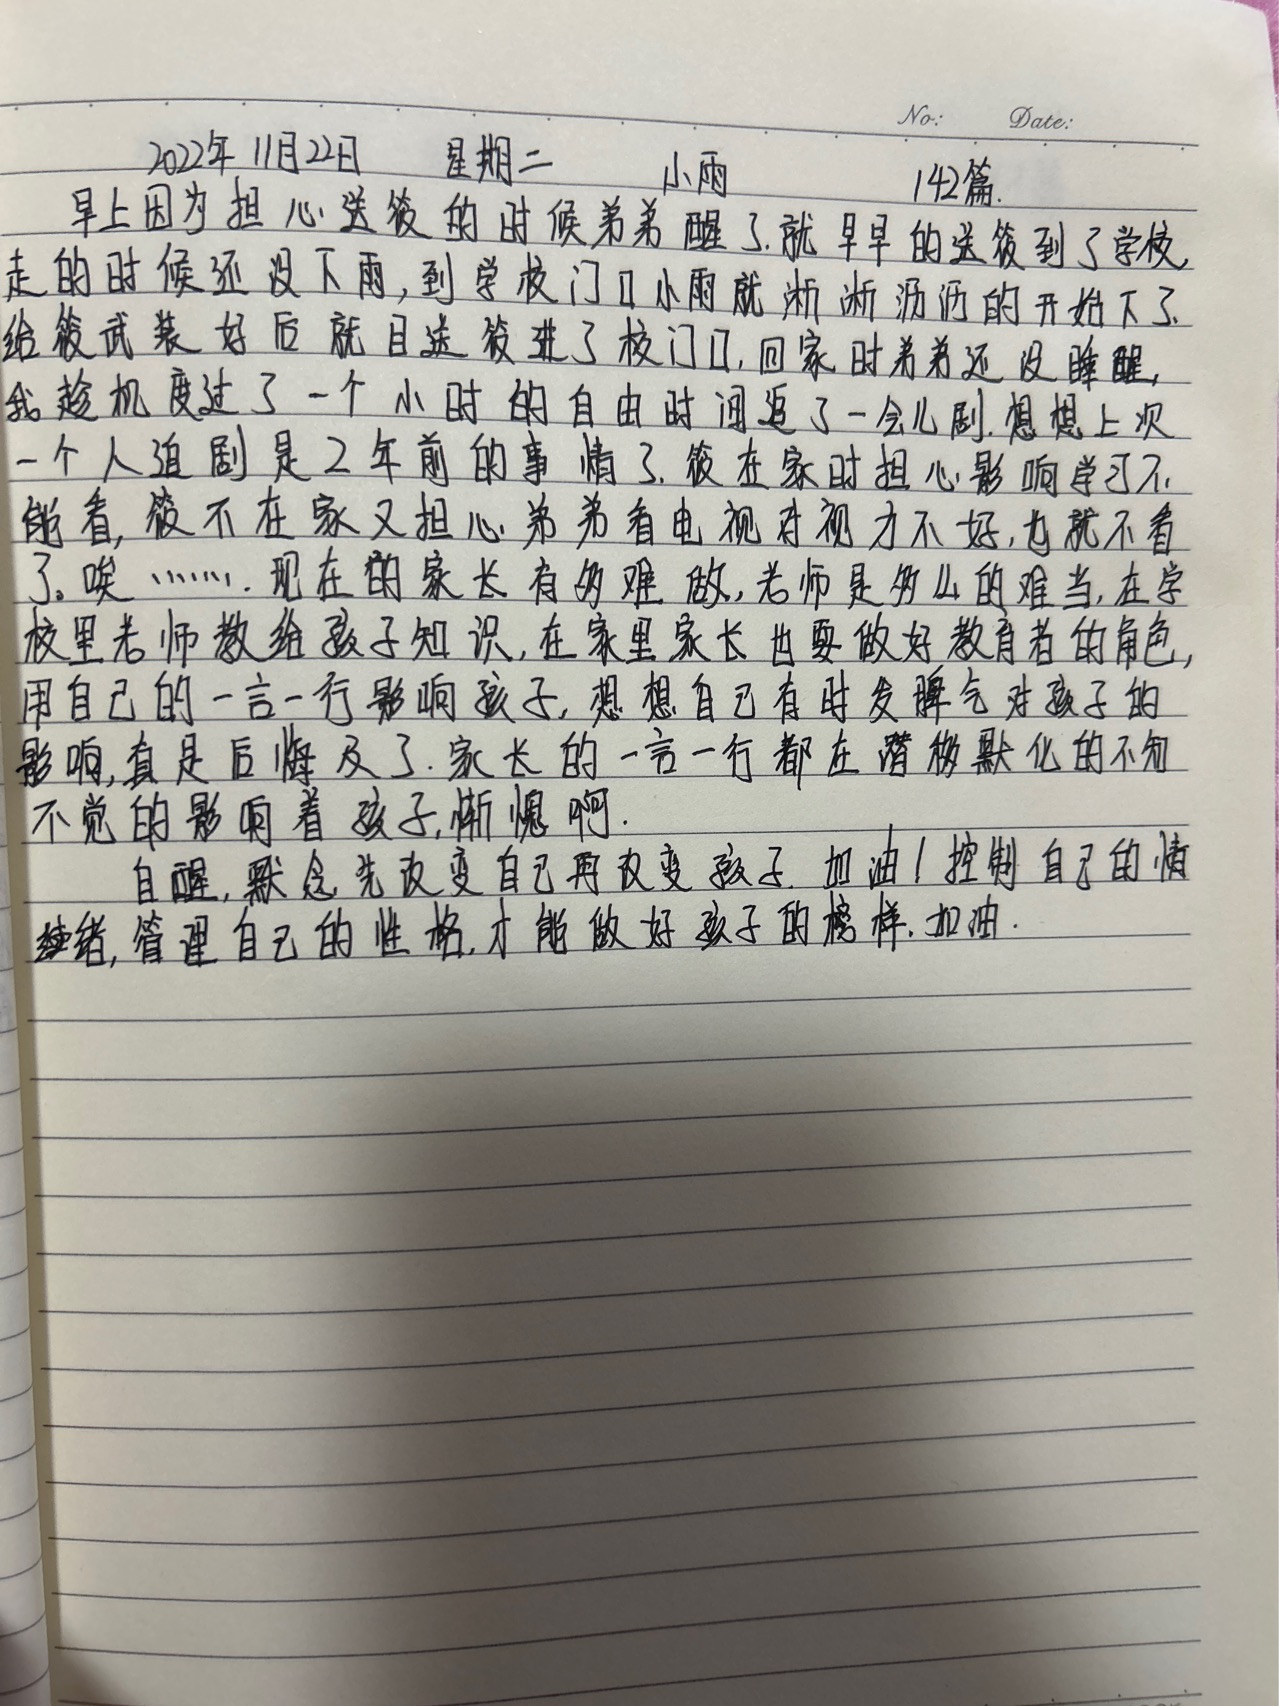 No: Date:
2022年11月22日 星期二 小雨 142篇.
早上因为担心送筱的时候弟弟醒了.就早早的送筱到了学校,
走的时候还没下雨,到学校门口小雨就淅淅沥沥的开始下了.
给筱武装好后就目送筱进了校门口,回家时弟弟还没睡醒,
我趁机度过了一个小时的自由时间追了一会儿剧.想想上次
一个人追剧是2年前的事情了.筱在家时担心影响学习不
能看,筱不在家又担心弟弟看电视对视力不好,也就不看
了。唉…….现在的家长有多难做,老师是多么的难当,在学
校里老师教给孩子知识,在家里家长也要做好教育者的角色,
用自己的一言一行影响孩子,想想自己有时发脾气对孩子的
影响,真是后悔及了.家长的一言一行都在潜移默化的不知
不觉的影响着孩子,惭愧啊.
自醒,默念先改变自己再改变孩子.加油!控制自己的情
绪,管理自己的性格,才能做好孩子的榜样.加油.